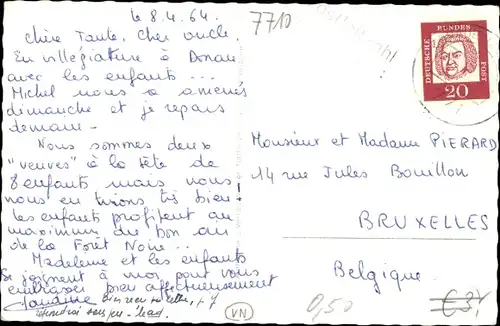 le 8.4.64
7710
Chère Tante, Cher oncle.
En villégiature à Donau
avec les enfants ...
Michel nous a amenés
dimanche et je repars
demain -
Nous sommes deux
"veuves" à la tête de
8 enfants mais nous
nous en tirons très bien -
les enfants profitent au
maximum du bon air
de la Forêt Noire ..
Madeleine et les enfants
se joignent à moi pour vous
embrasser bien affectueusement
DEUTSCHE BUNDES POST
20
Monsieur et Madame PIERARD
14 rue Jules Bouillon
BRUXELLES
Belgique.
VN
0,50
€ 3,-